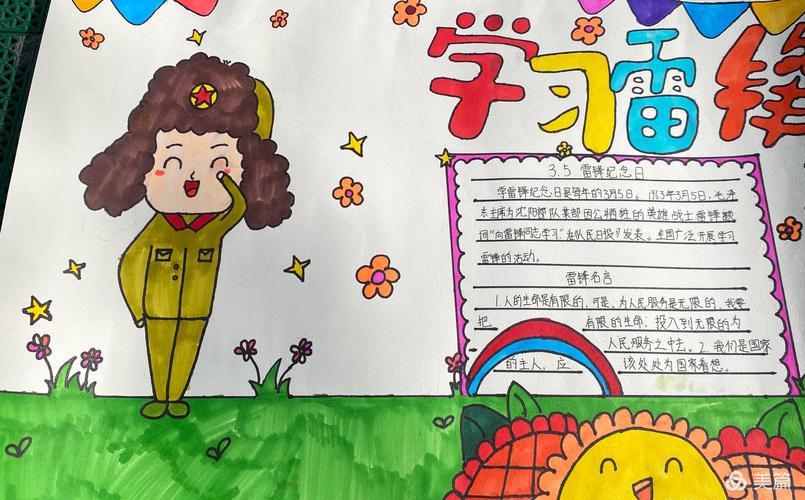 学习雷锋
3.5 雷锋纪念日
学雷锋纪念日是每年的3月5日。1963年3月5日，毛泽
东主席为沈阳部队某部因公牺牲的英雄战士雷锋题
词"向雷锋同志学习"在《人民日报》发表。全国广泛开展学习
雷锋的活动。
雷锋名言
1 人的生命是有限的，可是，为人民服务是无限的，我要
把 有限的生命，投入到无限的为
人民服务之中去。2.我们是国家
的主人，应 该处处为国家着想。
美篇